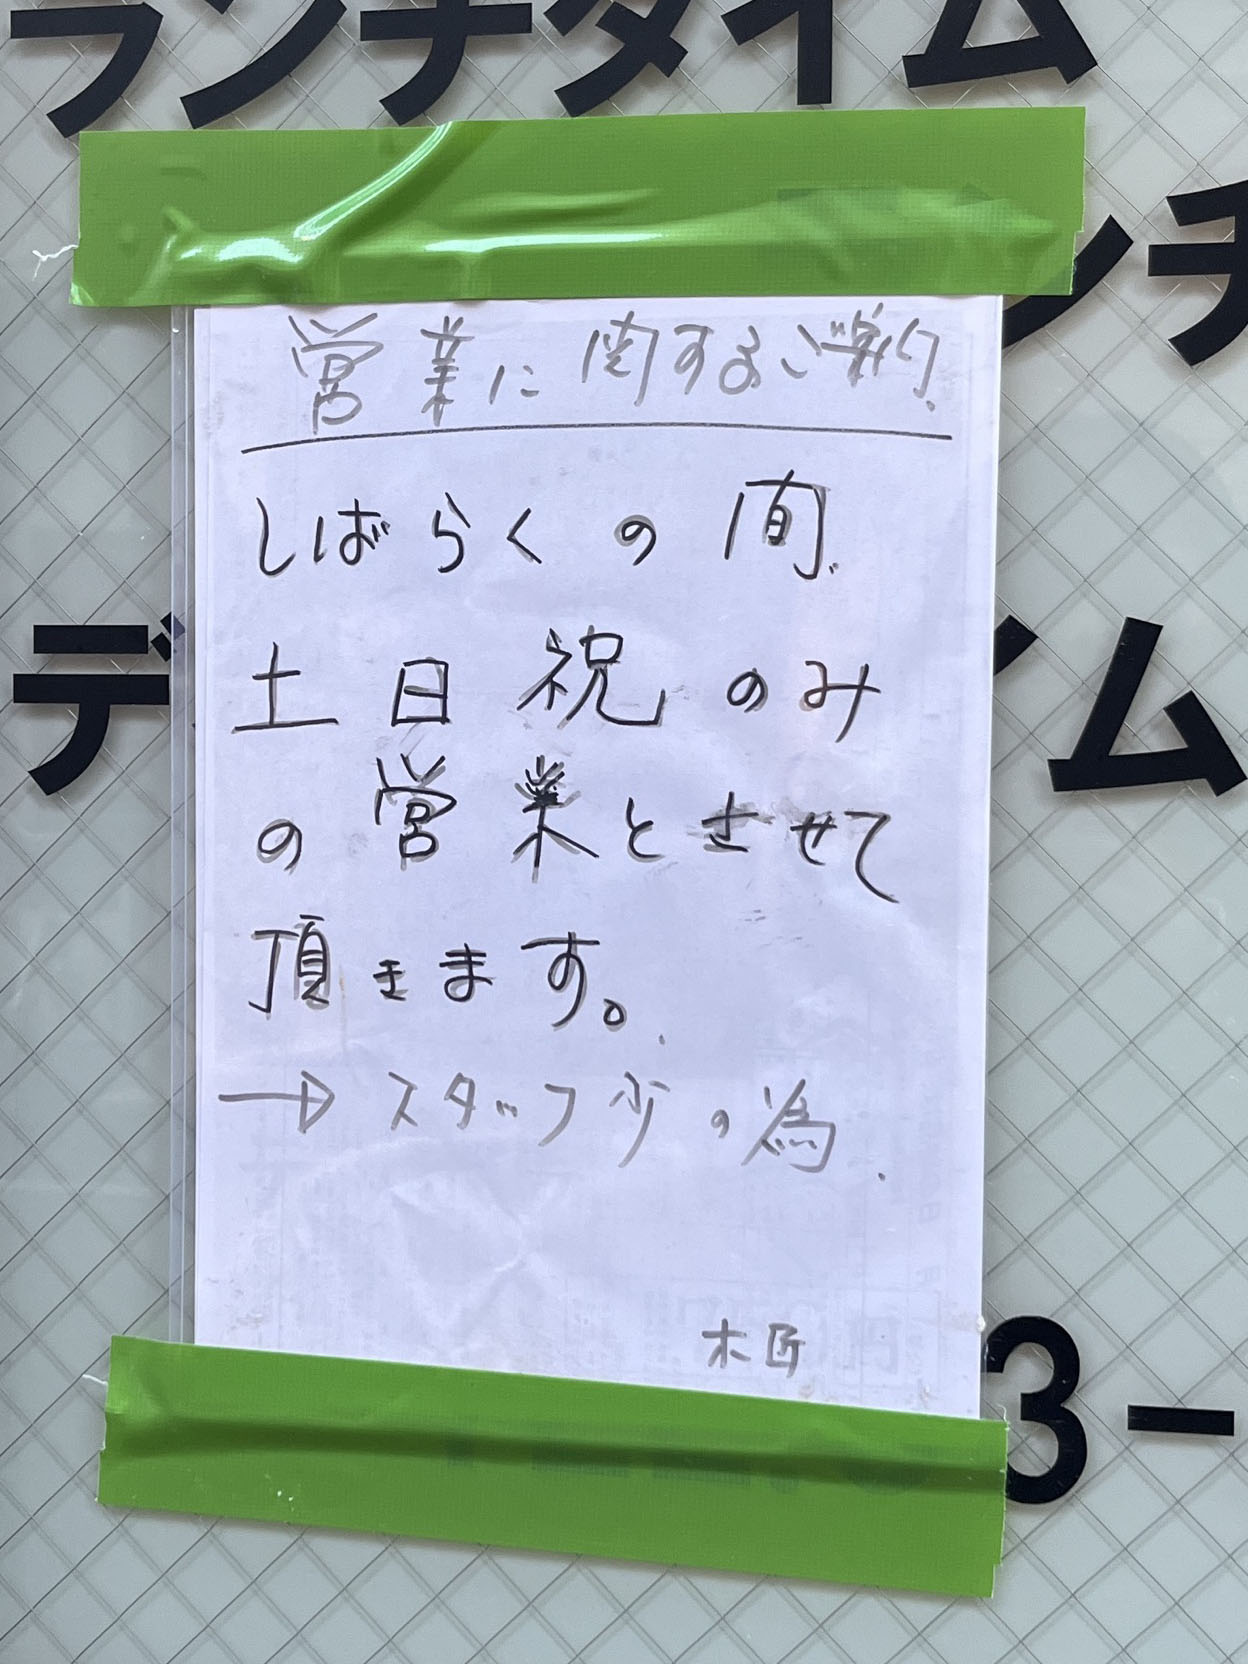 ランチタイム
ンチ
営業に関するご案内.
しばらくの間.
デ
土日祝のみ
ム
の営業とさせて
頂きます。
→スタッフ少の為.
木匠
3-